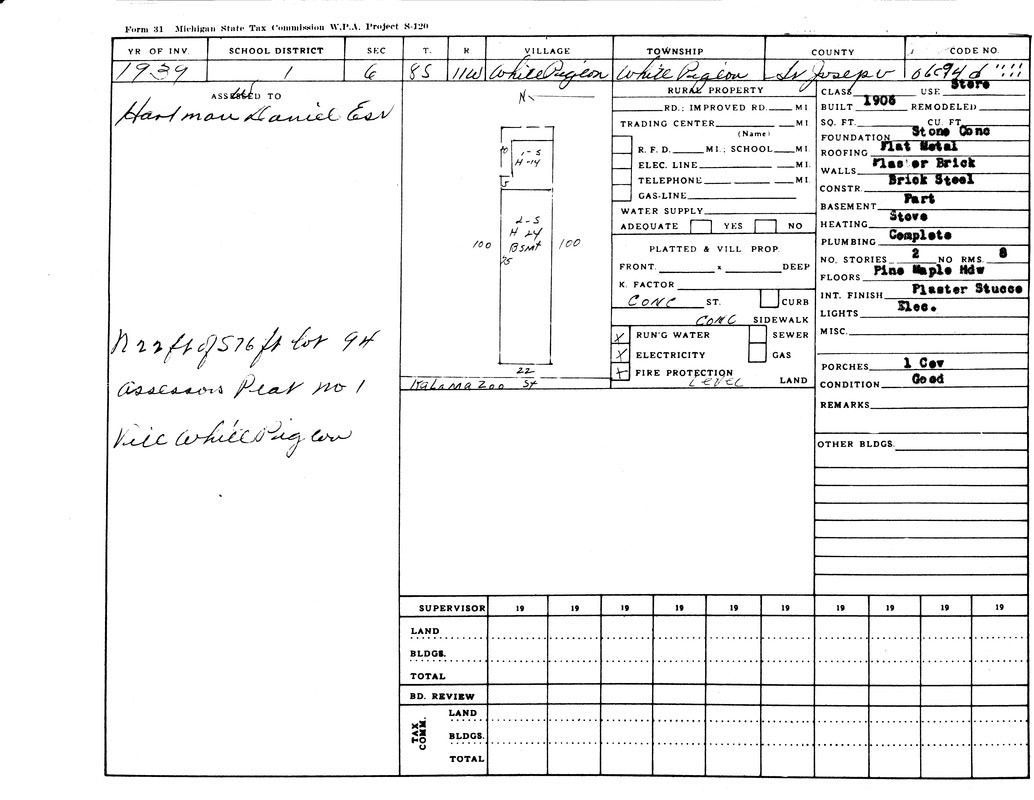 Form 31 Michigan State Tax Commission W.P.A. Project S-120
YR OF INV. SCHOOL DISTRICT SEC T. R VILLAGE TOWNSHIP COUNTY CODE NO.
1939 1 6 8S 11W White Pigeon White Pigeon St Joseph
ASSESSED TO
Hartman Daniel Est
N 22 ft of S 76 ft lot 94
Assessors Plat no 1
Vill White Pigeon
N
1-S
H-14
2-S
H 24
BSMT
75
100 100
22
Kalamazoo St
RURAL PROPERTY
RD.; IMPROVED RD. MI
TRADING CENTER MI.
(Name)
R. F. D. MI.; SCHOOL MI.
ELEC. LINE MI.
TELEPHONE MI.
GAS-LINE
WATER SUPPLY
ADEQUATE YES NO
PLATTED & VILL PROP.
FRONT. x DEEP
K. FACTOR
CONC ST. CURB
CONC SIDEWALK
X RUN'G WATER SEWER
X ELECTRICITY GAS
X FIRE PROTECTION
LEVEL LAND
CLASS USE Store
BUILT 1906 REMODELED
SQ. FT. CU. FT.
FOUNDATION Stone Conc
ROOFING Flat Metal
WALLS Plaster Brick
CONSTR. Brick Steel
BASEMENT Part
HEATING Stove
PLUMBING Complete
NO. STORIES 2 NO RMS. 8
FLOORS Pine Maple Hdw
INT. FINISH Plaster Stucco
LIGHTS Elec.
MISC.
PORCHES 1 Cov
CONDITION Good
REMARKS
OTHER BLDGS.
SUPERVISOR 19 19 19 19 19 19 19 19 19 19
LAND
BLDGS.
TOTAL
BD. REVIEW
TAX COMM.
LAND
BLDGS.
TOTAL